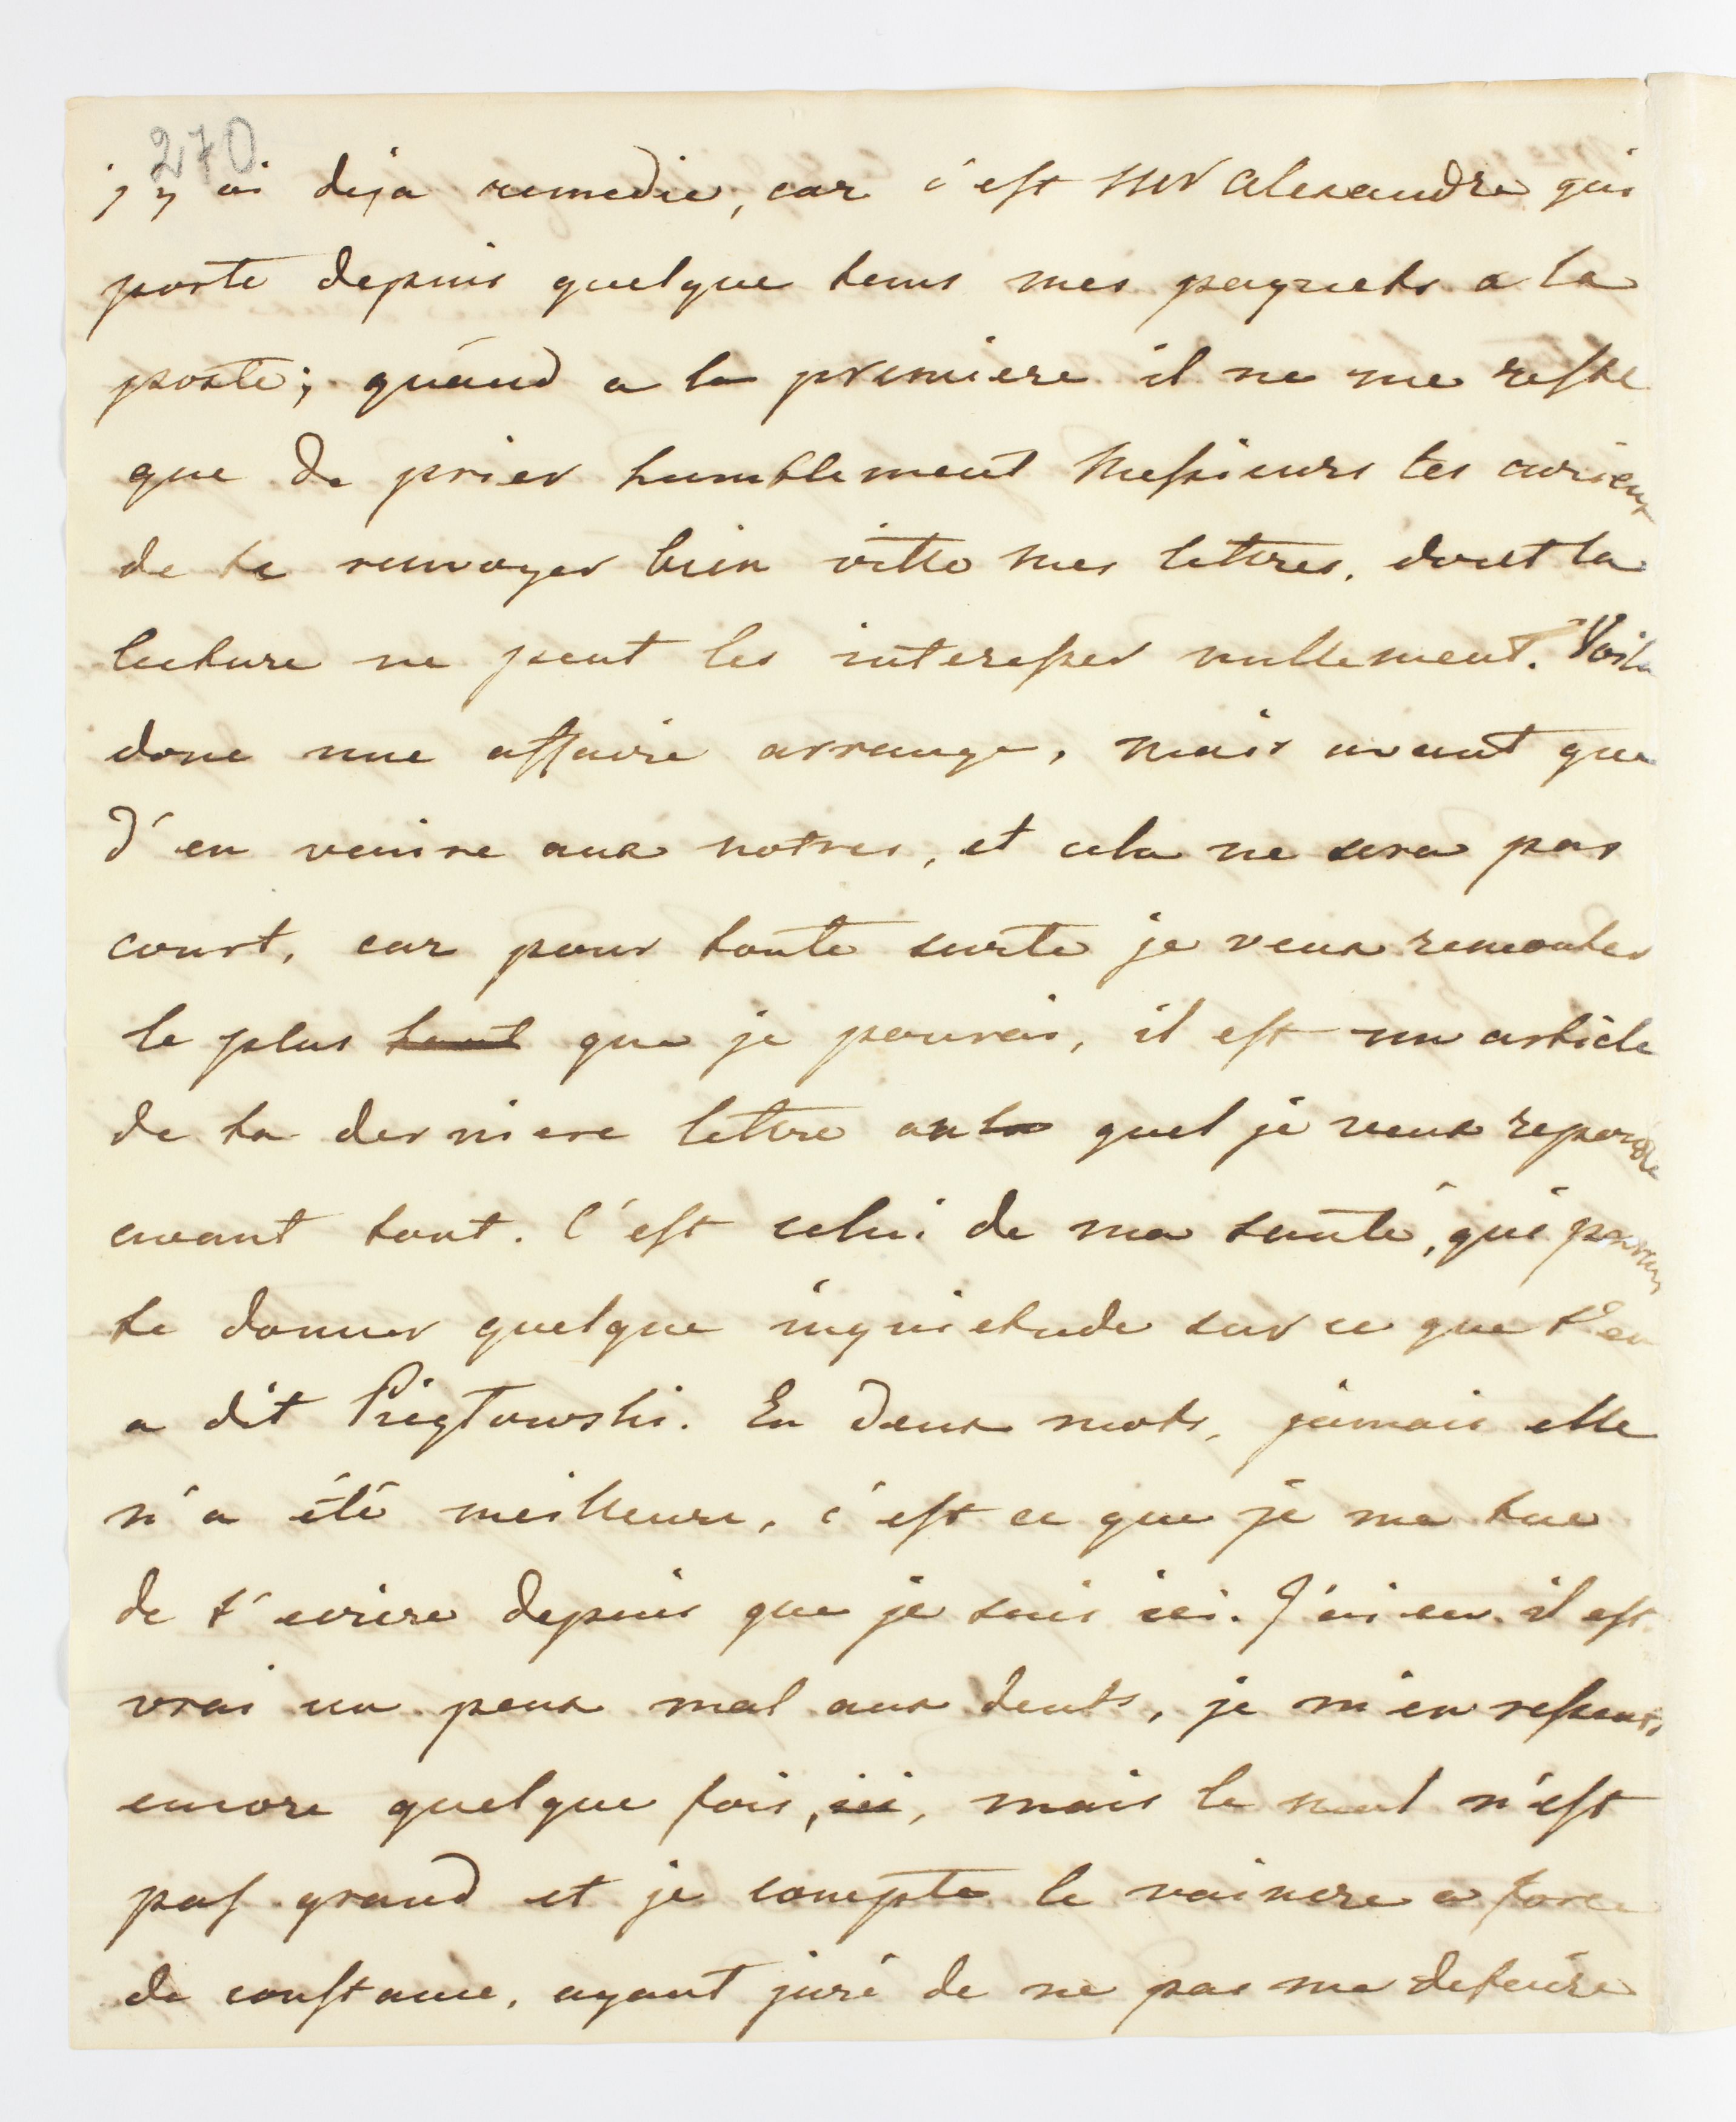 270.
j'y ai deja remedie, car c'est Mr Alexandre qui
porte depuis quelque tems mes paquets a la
poste; quand a la premiere il ne me reste
que de prier humblement Messieurs les curieux
de te renvoyer bien vitte mes lettres, dont la
lecture ne peut les interesser nullement. Voila
donc une affaire arrange, mais avant que
d'en venire aux notres, et cela ne sera pas
court, car pour toute surte je veux remonter
le plus haut que je pourai, il est un article
de ta derniere lettre au quel je veux repondre
avant tout. C'est celui de ma santé, qui
te donner quelque inquietude sur ce que t'en
a dit En deux mots, jamais elle
n'a été meilleure, c'est ce que je me tue
de t'ecrire depuis que je suis ici. J'ai eu il est
vrai un peux mal aux dents, je m'en ressens
encore quelque fois, ici, mais le mal n'est
pas grand et je compte le vaincre a force
de constance, ayant juré de ne pas me defaire